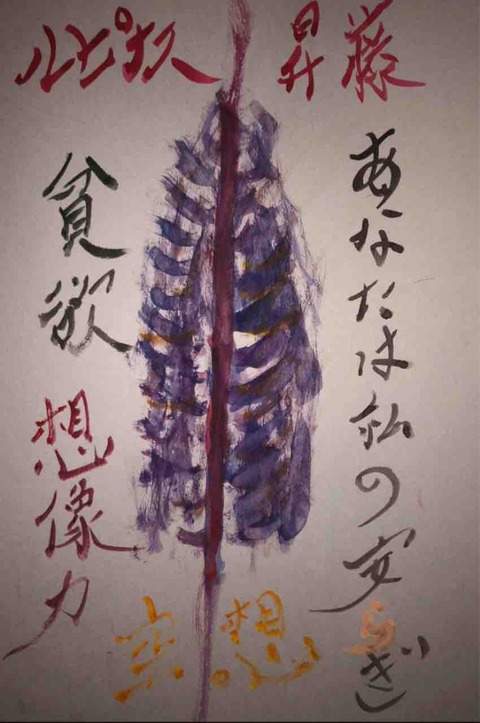 ルピナス 昇藤
あなたは私の安らぎ
貪欲
想像力
空想